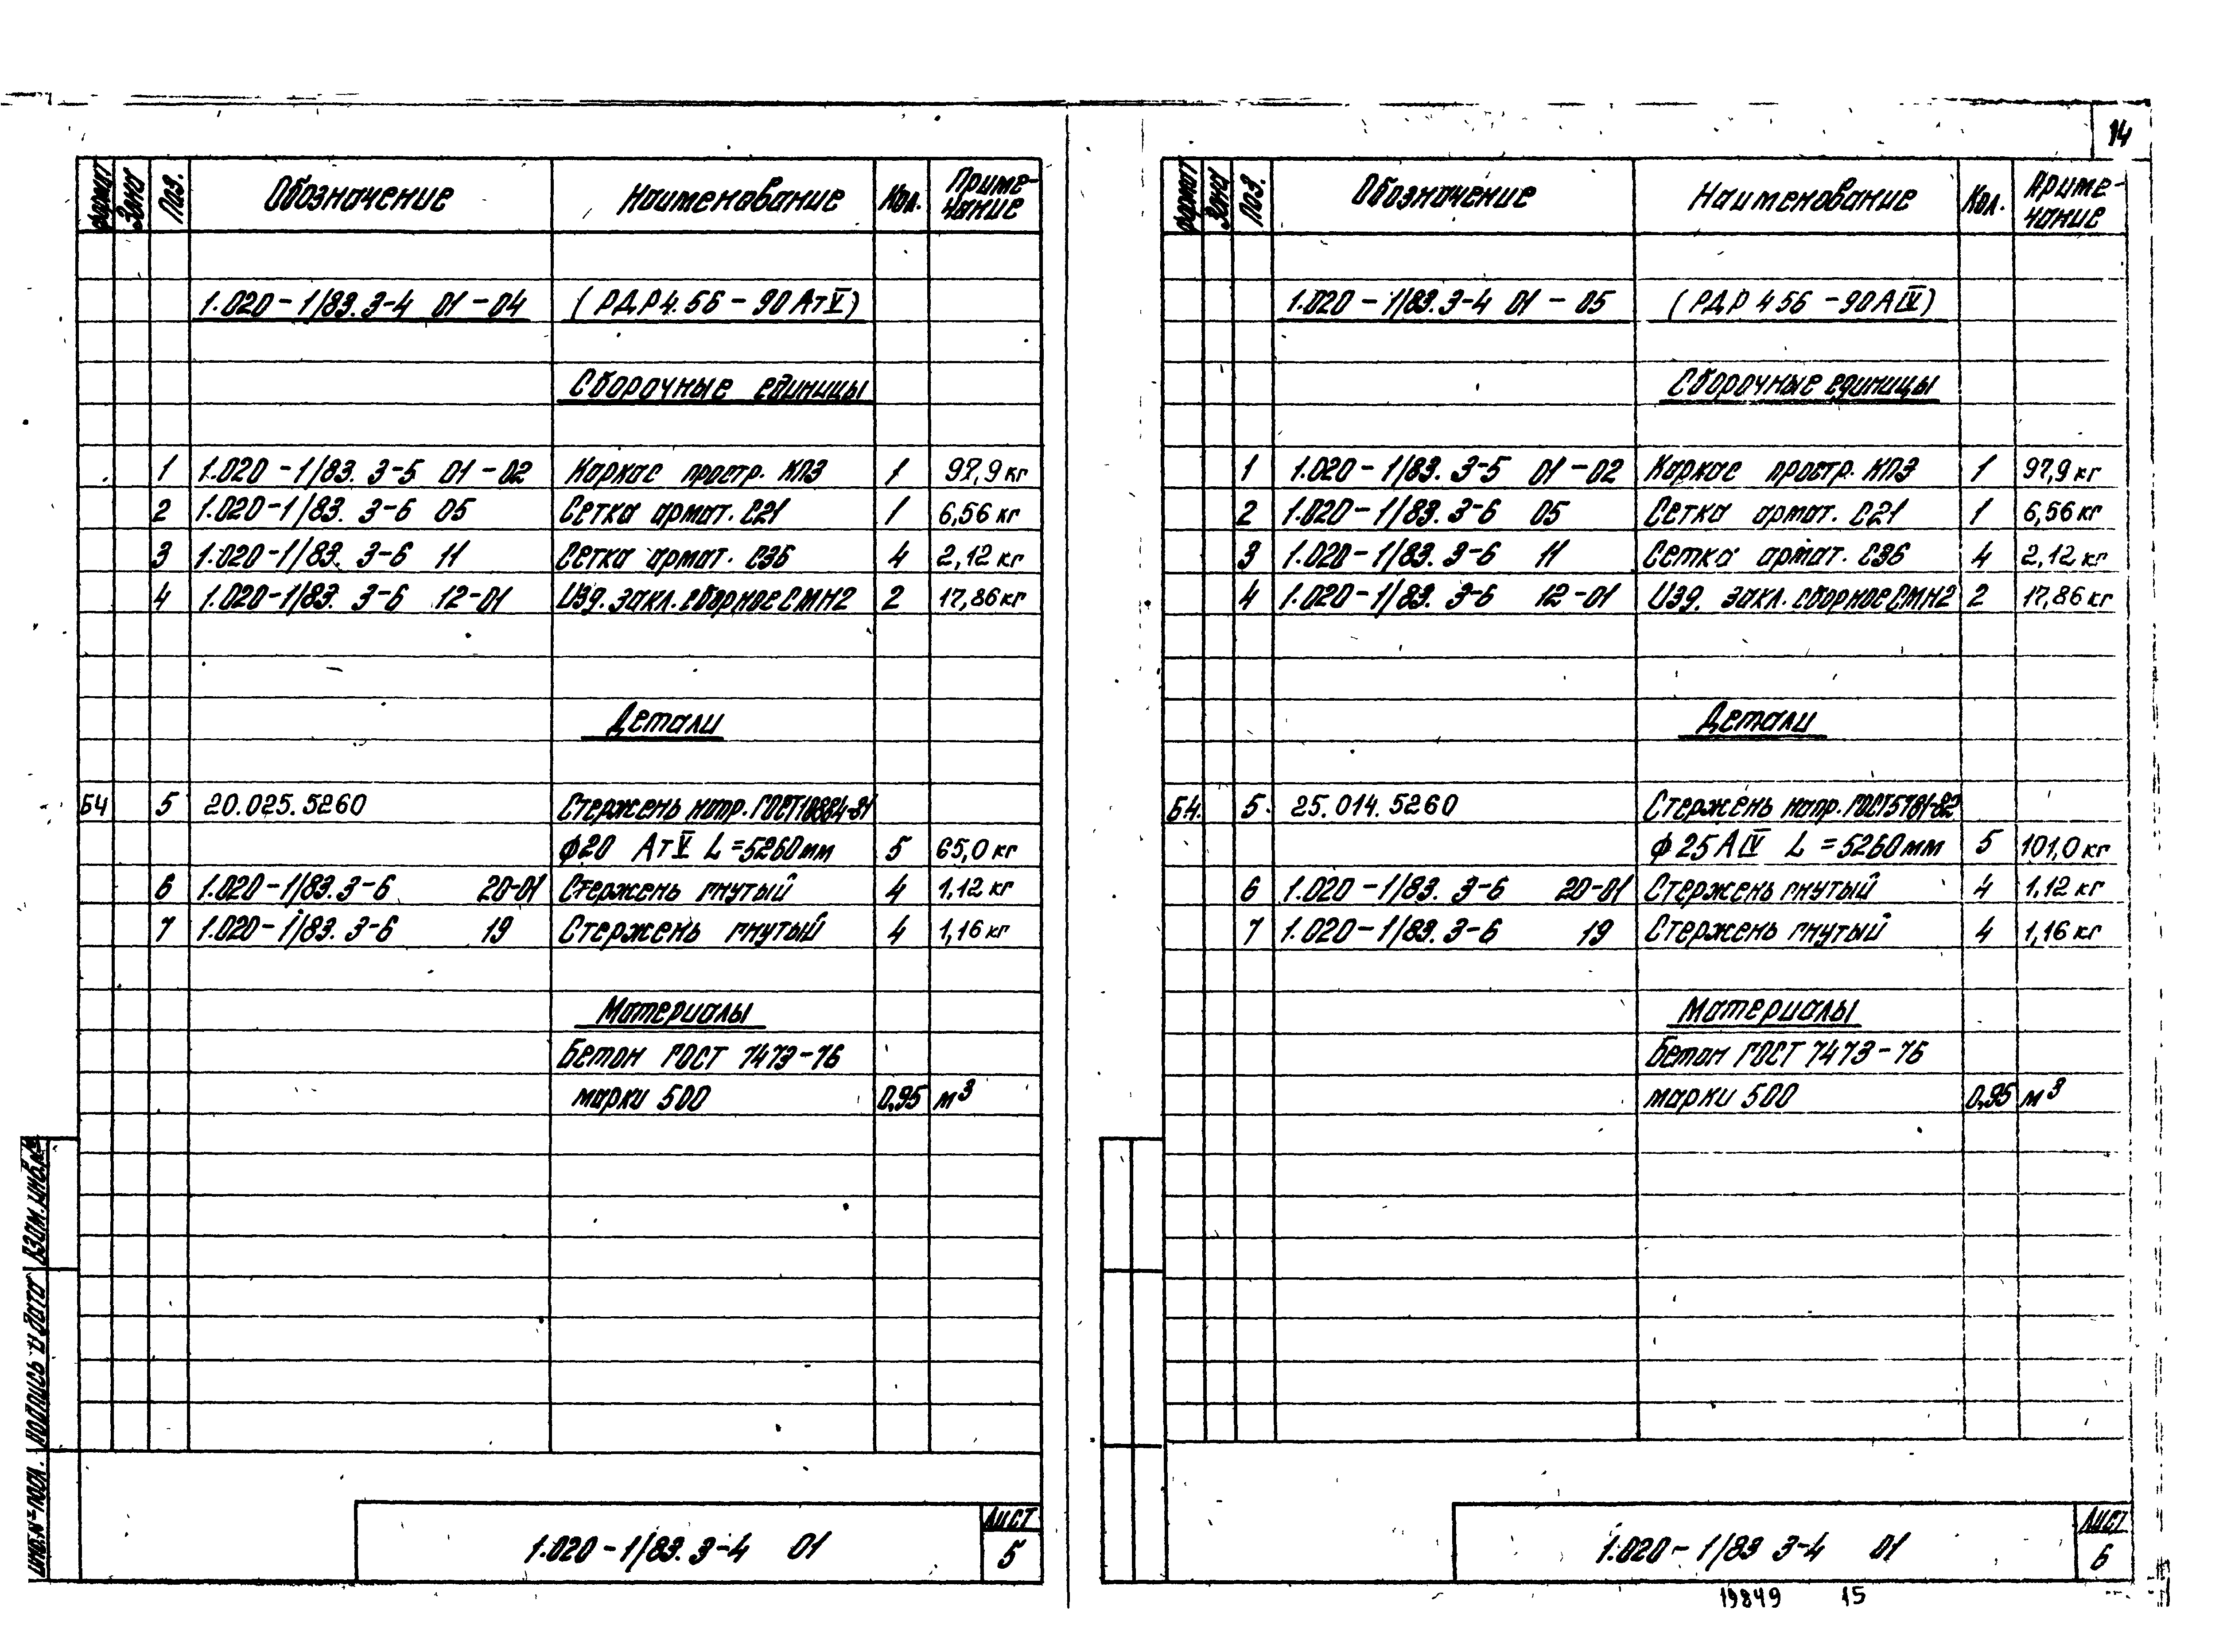 14
формат Зона Поз. Обозначение Наименование Кол. Приме-
чание
1.020-1/83. 3-4 01-04 (РДР4.56-90АтV)
Сборочные единицы
1 1.020-1/83. 3-5 01-02 Каркас простр. КП3 1 97,9 кг
2 1.020-1/83. 3-6 05 Сетка армат. С21 1 6,56 кг
3 1.020-1/83. 3-6 11 Сетка армат. С36 4 2,12 кг
4 1.020-1/83. 3-6 12-01 Изд. закл. сборное СМН2 2 17,86 кг
Детали
БЧ 5 20.025.5260 Стержень напр. ГОСТ10884-81
ф20 АтV L=5260мм 5 65,0 кг
6 1.020-1/83. 3-6 20-01 Стержень гнутый 4 1,12 кг
7 1.020-1/83. 3-6 19 Стержень гнутый 4 1,16 кг
Материалы
Бетон ГОСТ 7473-76
марки 500 0,95 м³
Инв.№ подл. Подпись и дата Взам. инв.№
1.020-1/83. 3-4 01
Лист
5
формат Зона Поз. Обозначение Наименование Кол. Приме-
чание
1.020-1/83. 3-4 01-05 (РДР 4 56-90АIV)
Сборочные единицы
1 1.020-1/83. 3-5 01-02 Каркас простр. КП3 1 97,9 кг
2 1.020-1/83. 3-6 05 Сетка армат. С21 1 6,56 кг
3 1.020-1/83. 3-6 11 Сетка армат. С36 4 2,12 кг
4 1.020-1/83. 3-6 12-01 Изд. закл. сборное СМН2 2 17,86 кг
Детали
БЧ. 5. 25.014.5260 Стержень напр. ГОСТ5781-82
ф25АIV L=5260мм 5 101,0 кг
6 1.020-1/83. 3-6 20-01 Стержень гнутый 4 1,12 кг
7 1.020-1/83. 3-6 19 Стержень гнутый 4 1,16 кг
Материалы
Бетон ГОСТ 7473-76
марки 500 0,95 м³
1.020-1/83 3-4 01
Лист
6
19849 15